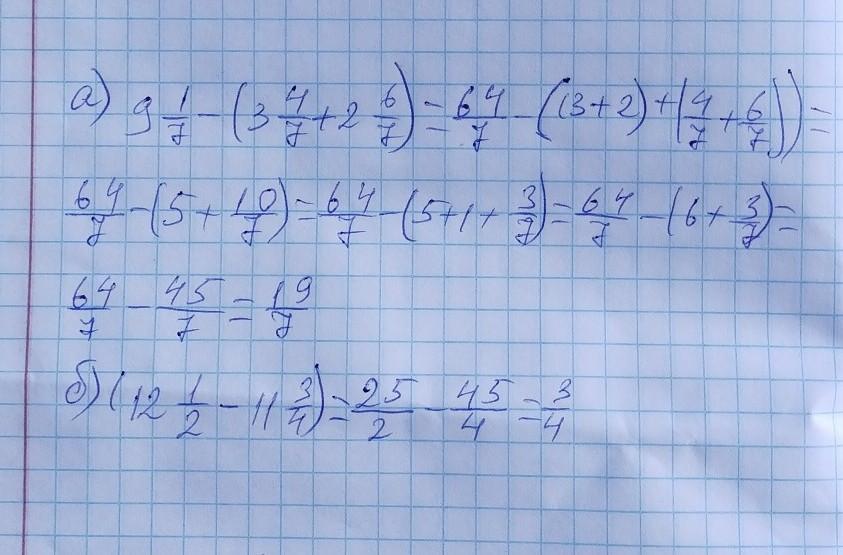 а) 9 1/7 - (3 4/7 + 2 6/7) = 64/7 - ((3 + 2) + (4/7 + 6/7)) =
64/7 - (5 + 10/7) = 64/7 - (5 + 1 + 3/7) = 64/7 - (6 + 3/7) =
64/7 - 45/7 = 19/7
б) (12 1/2 - 11 3/4) = 25/2 - 45/4 = 3/4